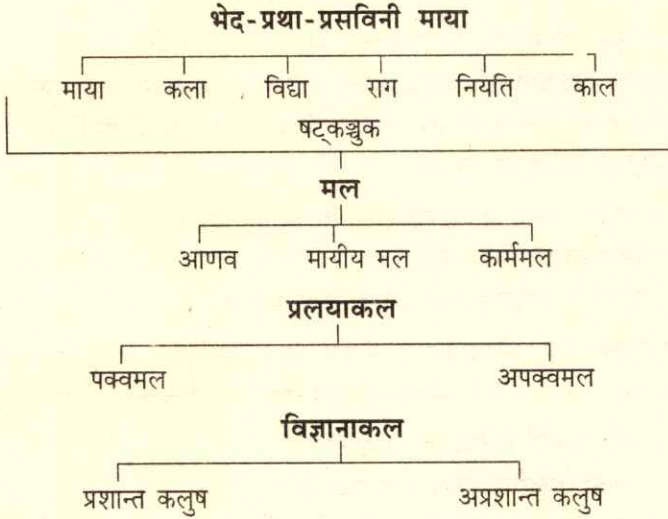 भेद-प्रथा-प्रसविनी माया
माया कला विद्या राग नियति काल
षट्कञ्चुक
मल
आणव मायीय मल कार्ममल
प्रलयाकल
पक्वमल अपक्वमल
विज्ञानाकल
प्रशान्त कलुष अप्रशान्त कलुष